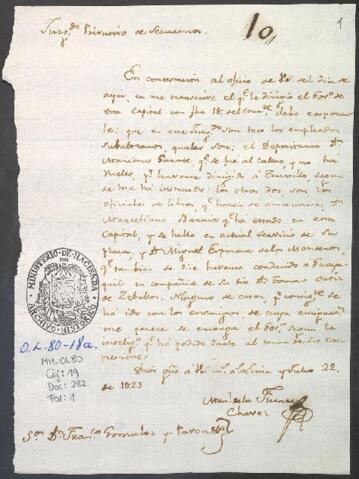 Juzg.do Privativo de Secuestros.
10
1
En contestacion al oficio de V.S. del dia de
ayer, en que me transcribe el q.e le dirigio el Gov.or de
esta Capital con fha 18. del cor.te debo exponer
le: que en este Juzg.do son tres los empleados
subalternos, quales son: el Depositario D.n
q.e se fué al Callao, y no ha
vuelto, q.e haverse dirigido á Truxillo, segun
se me ha informado: los otros dos son los
oficiales de libros, q.e hacia de amanuense D.n
Marceliano Barrios q.e ha estado en esta
Capital, y se halla en actual servicio de su
plaza, y D.n Miguel Espinosa de los Monteros,
q.e tambien se dice haverse conducido á Guaya-
quil en compañia de su tio D.n Tomas Ortiz
de Zeballos. Ninguno de es, q.e
ha ido con los enemigos, se
me parece se encarga el Gov.or segun lo
q.e ha podido darle el tenor de sus ex-
presiones.
Dios gũe á V.S. m.s a.s Lima y Julio 22.
de 1823
Man.l de la Fuente
Chavez
S.or D.n Fran.co Gonzalez y Pavon
MINISTERIO·DE·HACIENDA
ARCHIVO·HISTORICO
O.L. 80-18a.
MH-OL80
Caj: 19
Doc: 282
Fol: 1